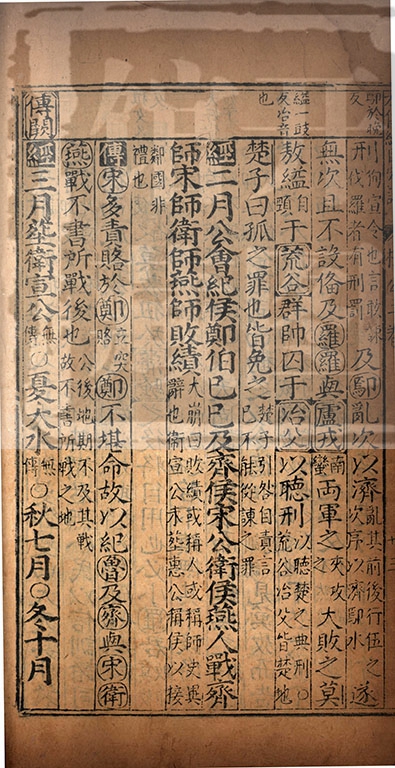 刑徇宣令也言敢諫反伐羅者有刑罰及鄢亂次以濟亂其前後行伍之次序以濟鄢水遂
無次且不設備及羅羅與盧戎南蠻兩軍之夾攻之大敗之莫
縊一豉反冶音也
敖縊自頸于荒谷群帥囚于冶父以聽刑以聽楚之典刑○荒谷冶父皆楚地
楚子曰孤之罪也皆免之楚子引咎自責言已不能從諫之罪
經二月公會紀侯鄭伯己巳及齊侯宋公衛侯燕人戰齊
師宋師衛師燕師敗績大崩曰敗績或稱人或稱師史異辭也衛宣公未塟惠公稱侯以接
鄰國非禮也
傳宋多責賂於鄭立突賂鄭不堪命故以紀魯及齊與宋衛
燕戰不書所戰後也公後地期不及其戰故不書所戰之地
經三月塟衛宣公無傳○夏大水無傳○秋七月○冬十月
傳闕